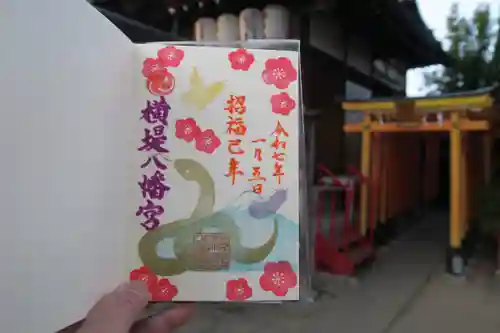 令和七年
一月五日
招福己年
横堤八幡宮